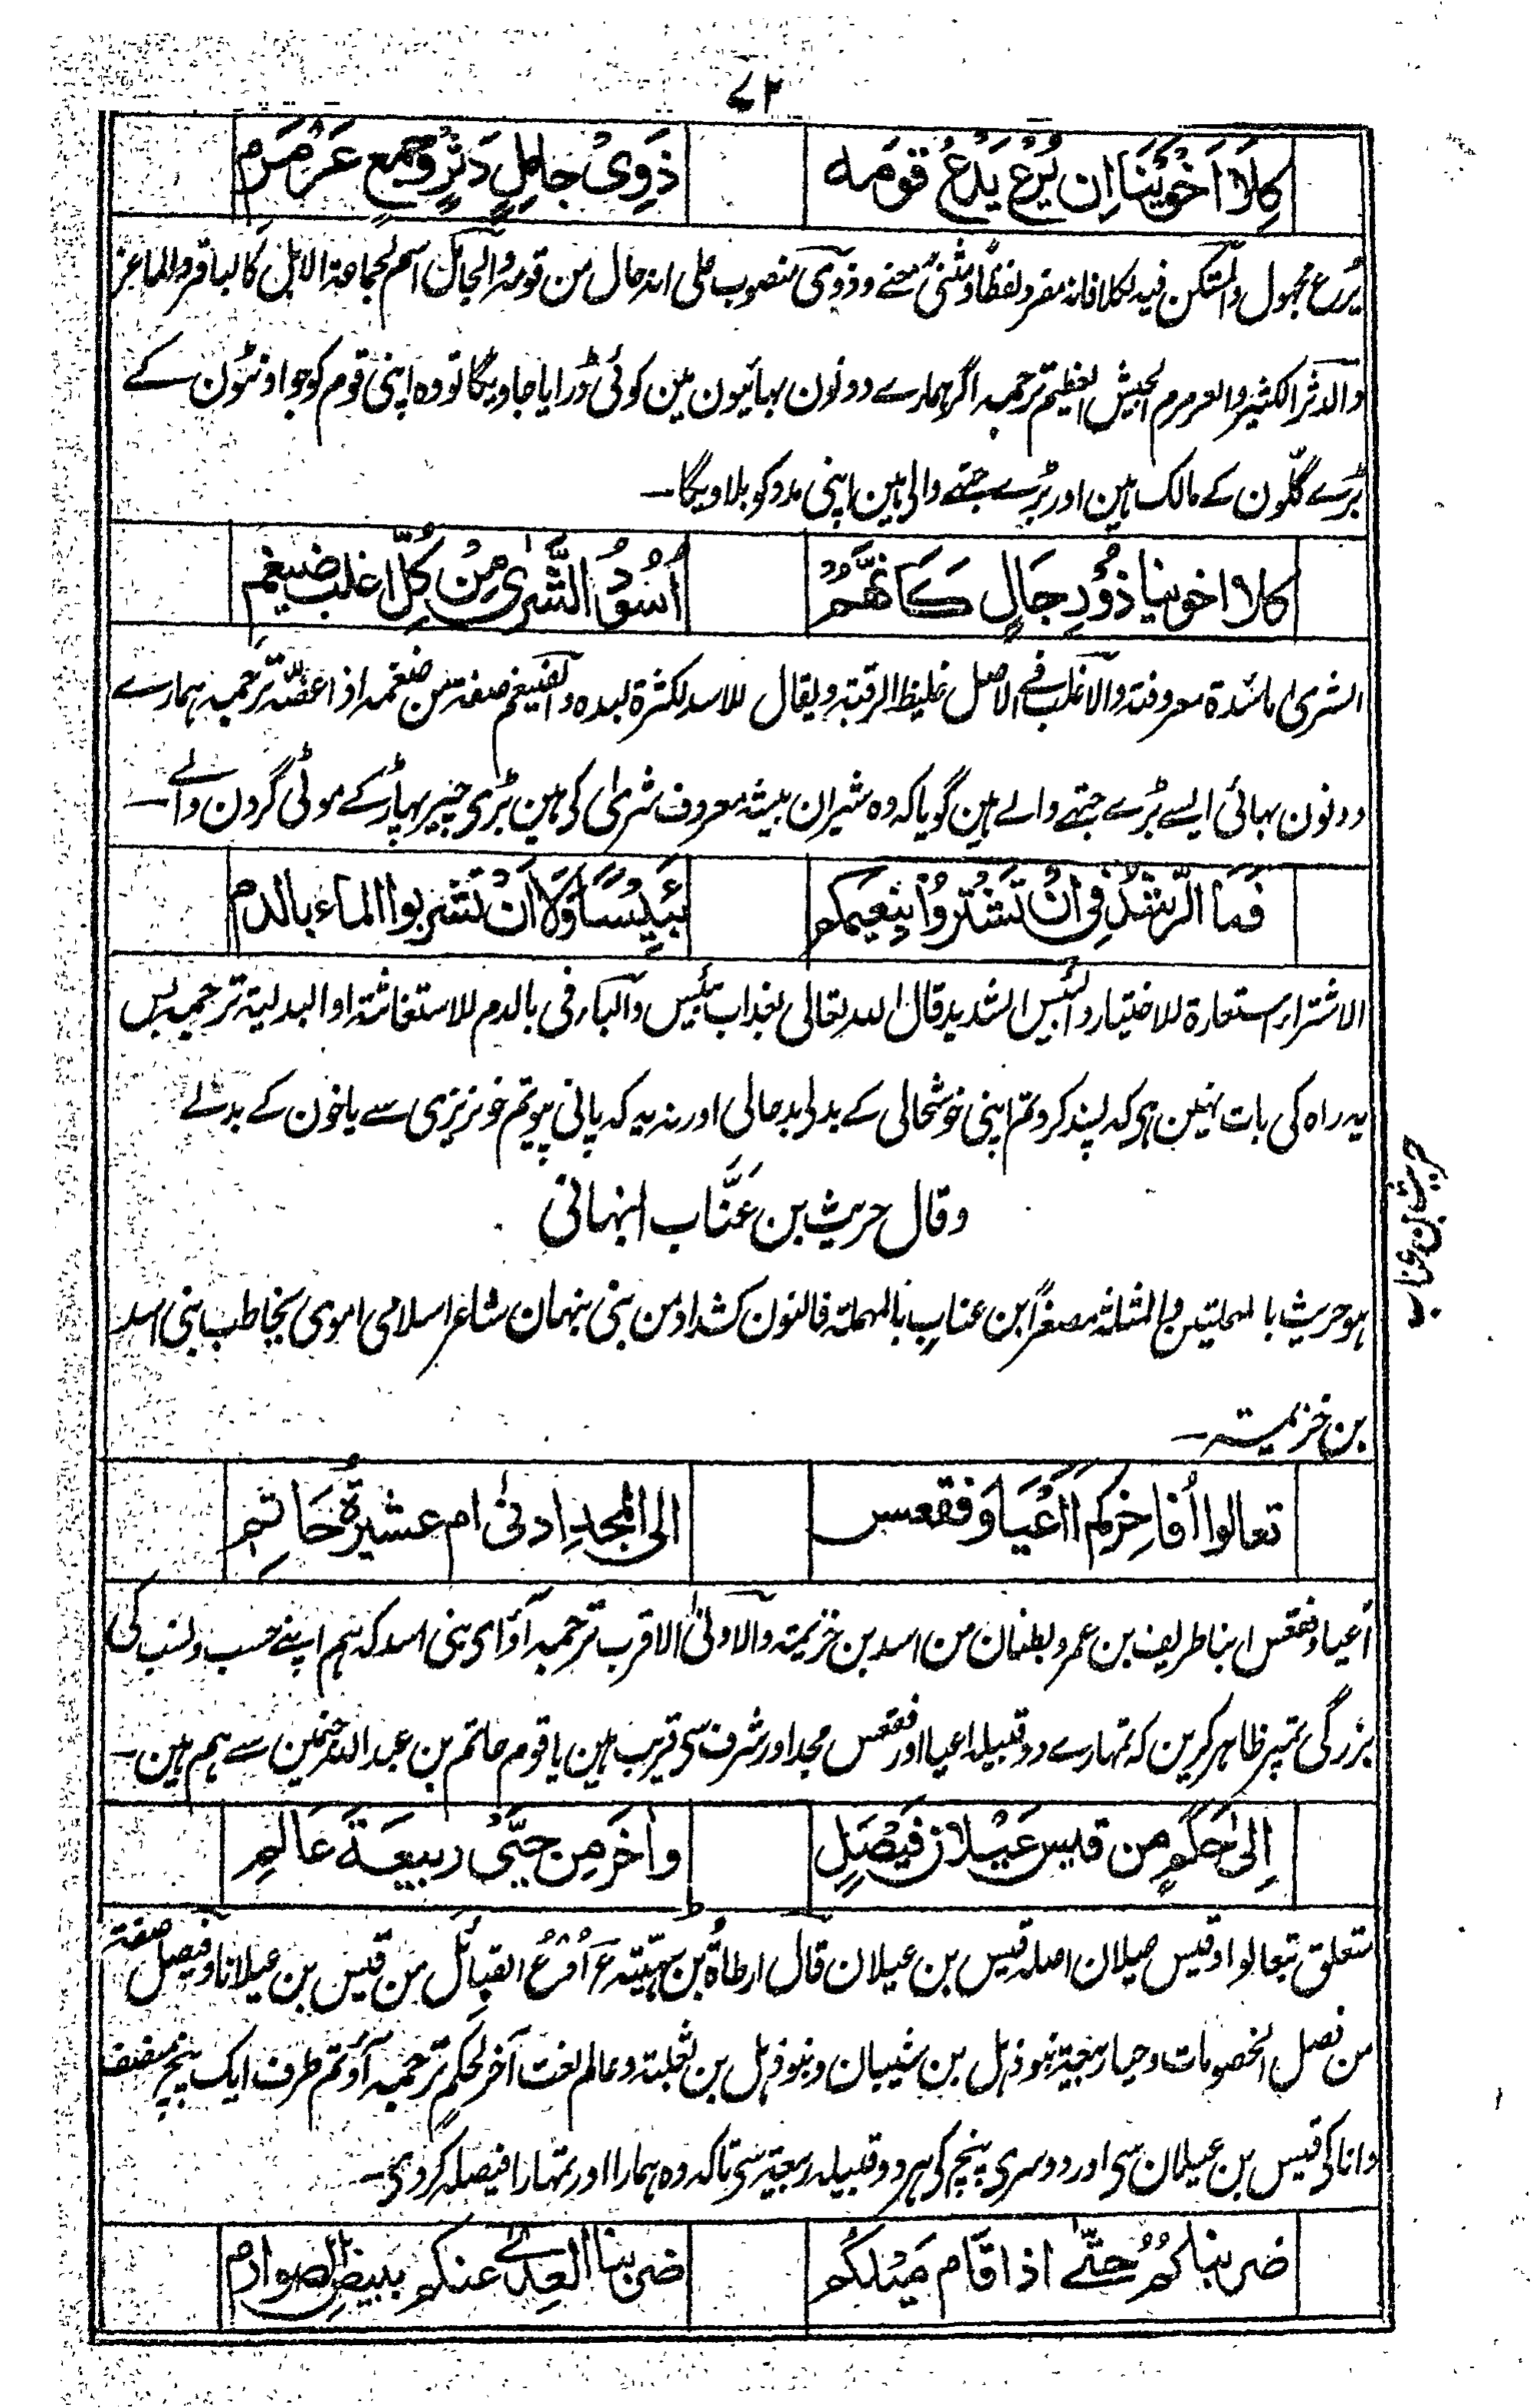 ۷۲
كِلَا اَخَوَيْنَا اِن يُرَعْ يَدْعُ قومَه ذَوِىْ جامِلٍ دَثْرٍ وجمعٍ عَرَمْرَم
يُرَع مجهول والمستكن فيه لكلا فانه مفرد لفظًا ومثنى معنے وذوى منصوب على انه حال من قومه والجامل اسم لجماعة الابل كالباقر والماعز
والدثر الكثير والعرمرم الجيش العظيم ترجمہ اگر ہمارے دونون بہائیون مین کوئی ڈرایا جاویگا تو وہ اپنی قوم کو جو اونٹون کے
بڑے گلّون کے مالک ہین اور بڑے جتھے والی ہین اپنی مدد کو بلاویگا۔
كلا اخوينا ذُوْ رِجَالٍ كَاَنَّهُمْ اُسُوْدُ الشَّرٰى مِنْ كُلِّ اغلب ضيغمِ
الشرىٰ ماسدة معروفة والاغلب فے الاصل غليظ الرقبة ويقال للاسد لكثرة لبده والضيغم صفة من ضغمه اذا عضّه ترجمہ ہمارے
دونون بہائی ایسے بڑے جتھے والے ہین گویا کہ وہ شیران بیشہ معروف شرىٰ کی ہین بڑی چیر پہاڑ کے موٹی گردن والے۔
فَما الرّشْدُ فى اَنْ تَشْتَرُوْا بِنَعِيمِكم بَئِيْسًا وَلَا اَنْ تَشربوا الماء بالدم
الاشتراء استعارة للاختيار والبئيس الشديد قال اللہ تعالى بعذاب بئيس والباء فى بالدم للاستغاثة او البدلية ترجمہ پس
یہ راہ کی بات نہین ہی کہ پسند کرو تم اپنی خوشحالی کے بدلی بدحالی اور نہ یہ کہ پانی پیو تم خونریزی سے یا خون کے بدلے
وقال حريث بن عَنَّاب النبهانى
حريث بن عناب
هو حريث بالمهملتين والمثلثة مصغرًا ابن عناب بالمهملة فالنون كشداد من بنى نبهان شاعر اسلامى اموى يخاطب بنى اسد
بن خزيمة۔
تعالوا اُفاخِركم اَاَعْيَا وَفقعس الى المجدِ ادنىٰ ام عشيرةُ حَاتِمِ
اَعيا وفقعس ابنا طريف بن عمرو بطنان من اسد بن خزيمة والادنىٰ الاقرب ترجمہ آؤ اى بنى اسد کہ ہم اپنے حسب ونسب کی
بزرگی تمپر ظاہر کرین کہ تمہارے دو قبیلہ اعیا اور فقعس مجد اور شرف سی قریب ہین یا قوم حاتم بن عبد اللہ جنمین سے ہم ہین۔
اِلىٰ حَكَمٍ من قيس عَيْلَان فَيْصَلٍ واٰخَرَ مِن حيَّىْ ربيعَةَ عَالمِ
متعلق بتعالوا وقيس عيلان اصله قيس بن عيلان قال ارطاة بن سهيّة ع اَفْرَعُ القبائل من قيس بن عيلانا وفيصل صفة
من فصل الخصومات وحيا ربيعة بنو ذهل بن شيبان وبنو ذهل بن ثعلبة وعالم نعت آخر لحكم ترجمہ آؤ تم طرف ایک پنچ منصف
دانا کی قیس بن عیلان سی اور دوسری پنچ کی ہر دو قبیلہ ربیعة سی تاکہ وہ ہمارا اور تمہارا فیصلہ کردی۔
ضربناكُمُ حتّے اذا قَام مَيْلكُم ضربنا العِدىٰ عنكم ببيضِ الصوارم